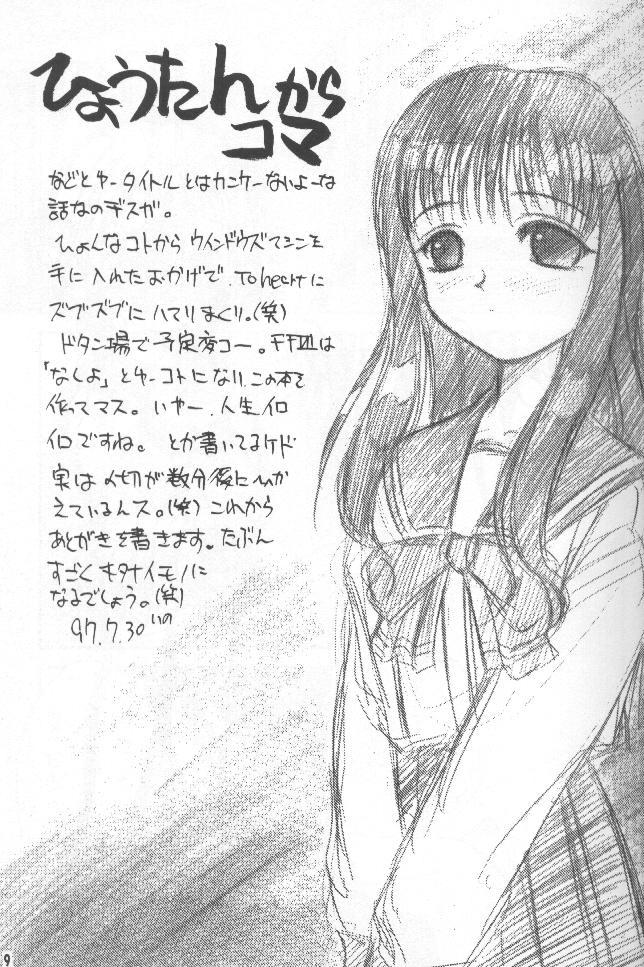 ひょうたんから
コマ
などとゆータイトルとはカンケーないよーな
話なのデスガ。
ひょんなコトから ウインドウズマシンを
手に入れたおかげで、To heartに
ズブズブにハマりまくり。(笑)
ドタン場で予定変コー。FFⅦは
「なしよ」とゆーコトになり、この本を
作ってマス。いやー、人生イロ
イロですね。とか書いてるケド
実は〆切が数分後にひか
えているんス。(笑) これから
あとがきを書きます。たぶん
すごくキタナイモノに
なるでしょう。(笑)
97.7.30 いの
9